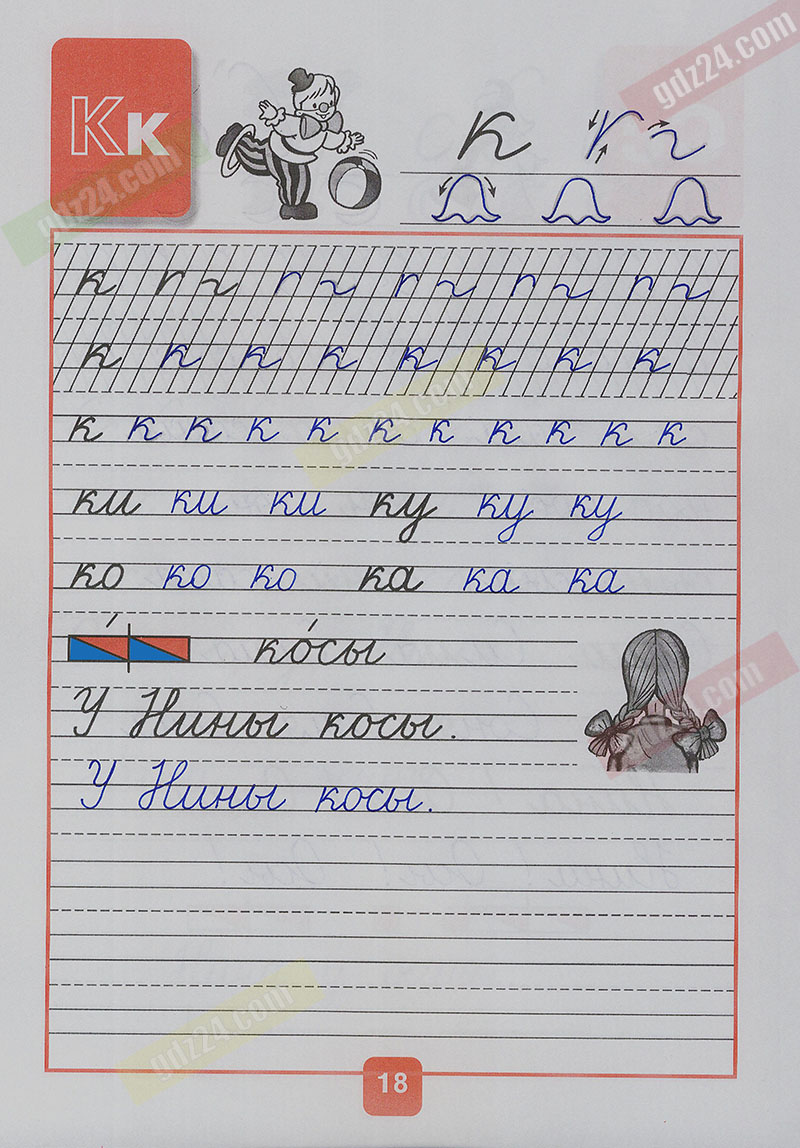 Кк
к
к
к к к к к к к к
к к к к к к к к к к к
ки ки ки ку ку ку
ко ко ко ка ка ка
ко́сы
У Нины косы.
У Нины косы.
18
gdz24.com
gdz24.com
gdz24.com
gdz24.com
gdz24.com